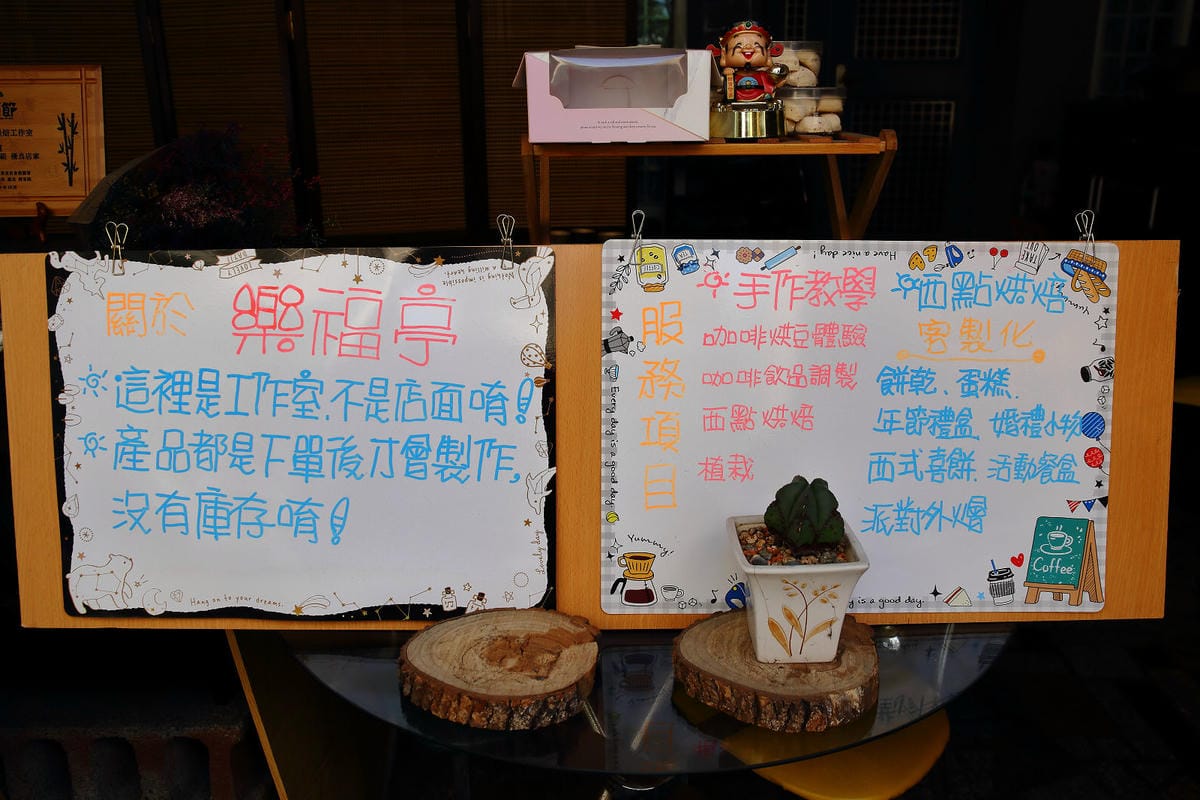 關於 樂福亭
這裡是工作室、不是店面唷!
產品都是下單後才會製作,
沒有庫存唷!
Nothing is impossible to
a willing heart.
Hang on to your dreams.
Lovely day
服務項目
手作教學
咖啡烘豆體驗
咖啡飲品調製
西點烘焙
植栽
西點烘焙
客製化
餅乾、蛋糕、
年節禮盒 婚禮小物
西式喜餅、活動餐盒
派對外燴
Have a nice day!
TAKE OUT
Yummy
Every day is a good day.
Yummy!
y is a good day.
Coffee
節
焙工作室
優良店家